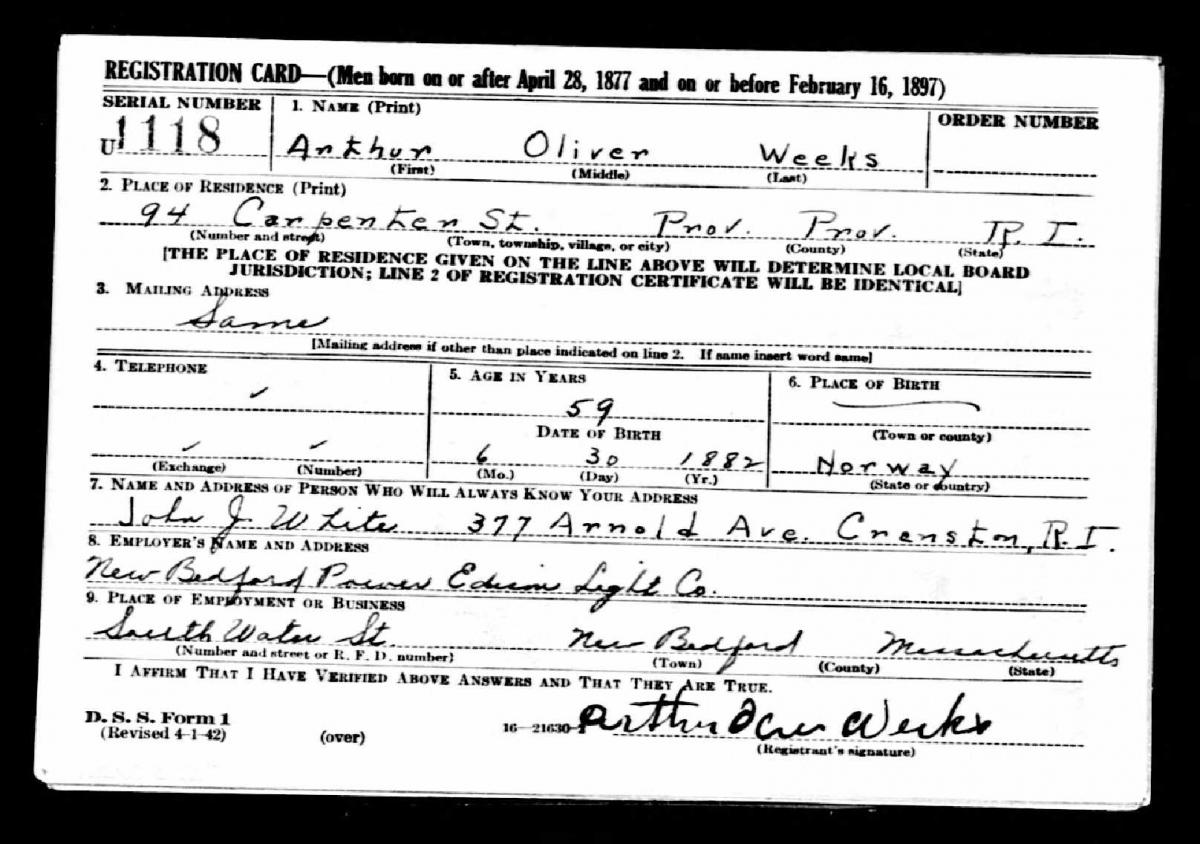 REGISTRATION CARD—(Men born on or after April 28, 1877 and on or before February 16, 1897)
SERIAL NUMBER
1. NAME (Print)
ORDER NUMBER
U 1118
Arthur Oliver Weeks
(First) (Middle) (Last)
2. PLACE OF RESIDENCE (Print)
94 Carpenter St. Prov. Prov. R.I.
(Number and street) (Town, township, village, or city) (County) (State)
[THE PLACE OF RESIDENCE GIVEN ON THE LINE ABOVE WILL DETERMINE LOCAL BOARD
JURISDICTION; LINE 2 OF REGISTRATION CERTIFICATE WILL BE IDENTICAL]
3. MAILING ADDRESS
Same
[Mailing address if other than place indicated on line 2. If same insert word same]
4. TELEPHONE
5. AGE IN YEARS
6. PLACE OF BIRTH
59
DATE OF BIRTH
(Town or county)
6 30 1882
Norway
(Exchange) (Number)
(Mo.) (Day) (Yr.)
(State or country)
7. NAME AND ADDRESS OF PERSON WHO WILL ALWAYS KNOW YOUR ADDRESS
John J. White 377 Arnold Ave. Cranston, R.I.
8. EMPLOYER'S NAME AND ADDRESS
New Bedford Power Edison Light Co.
9. PLACE OF EMPLOYMENT OR BUSINESS
South Water St. New Bedford Massachusetts
(Number and street or R. F. D. number) (Town) (County) (State)
I AFFIRM THAT I HAVE VERIFIED ABOVE ANSWERS AND THAT THEY ARE TRUE.
D. S. S. Form 1
(Revised 4-1-42)
(over)
16—21630-1
Arthur Oliver Weeks
(Registrant's signature)